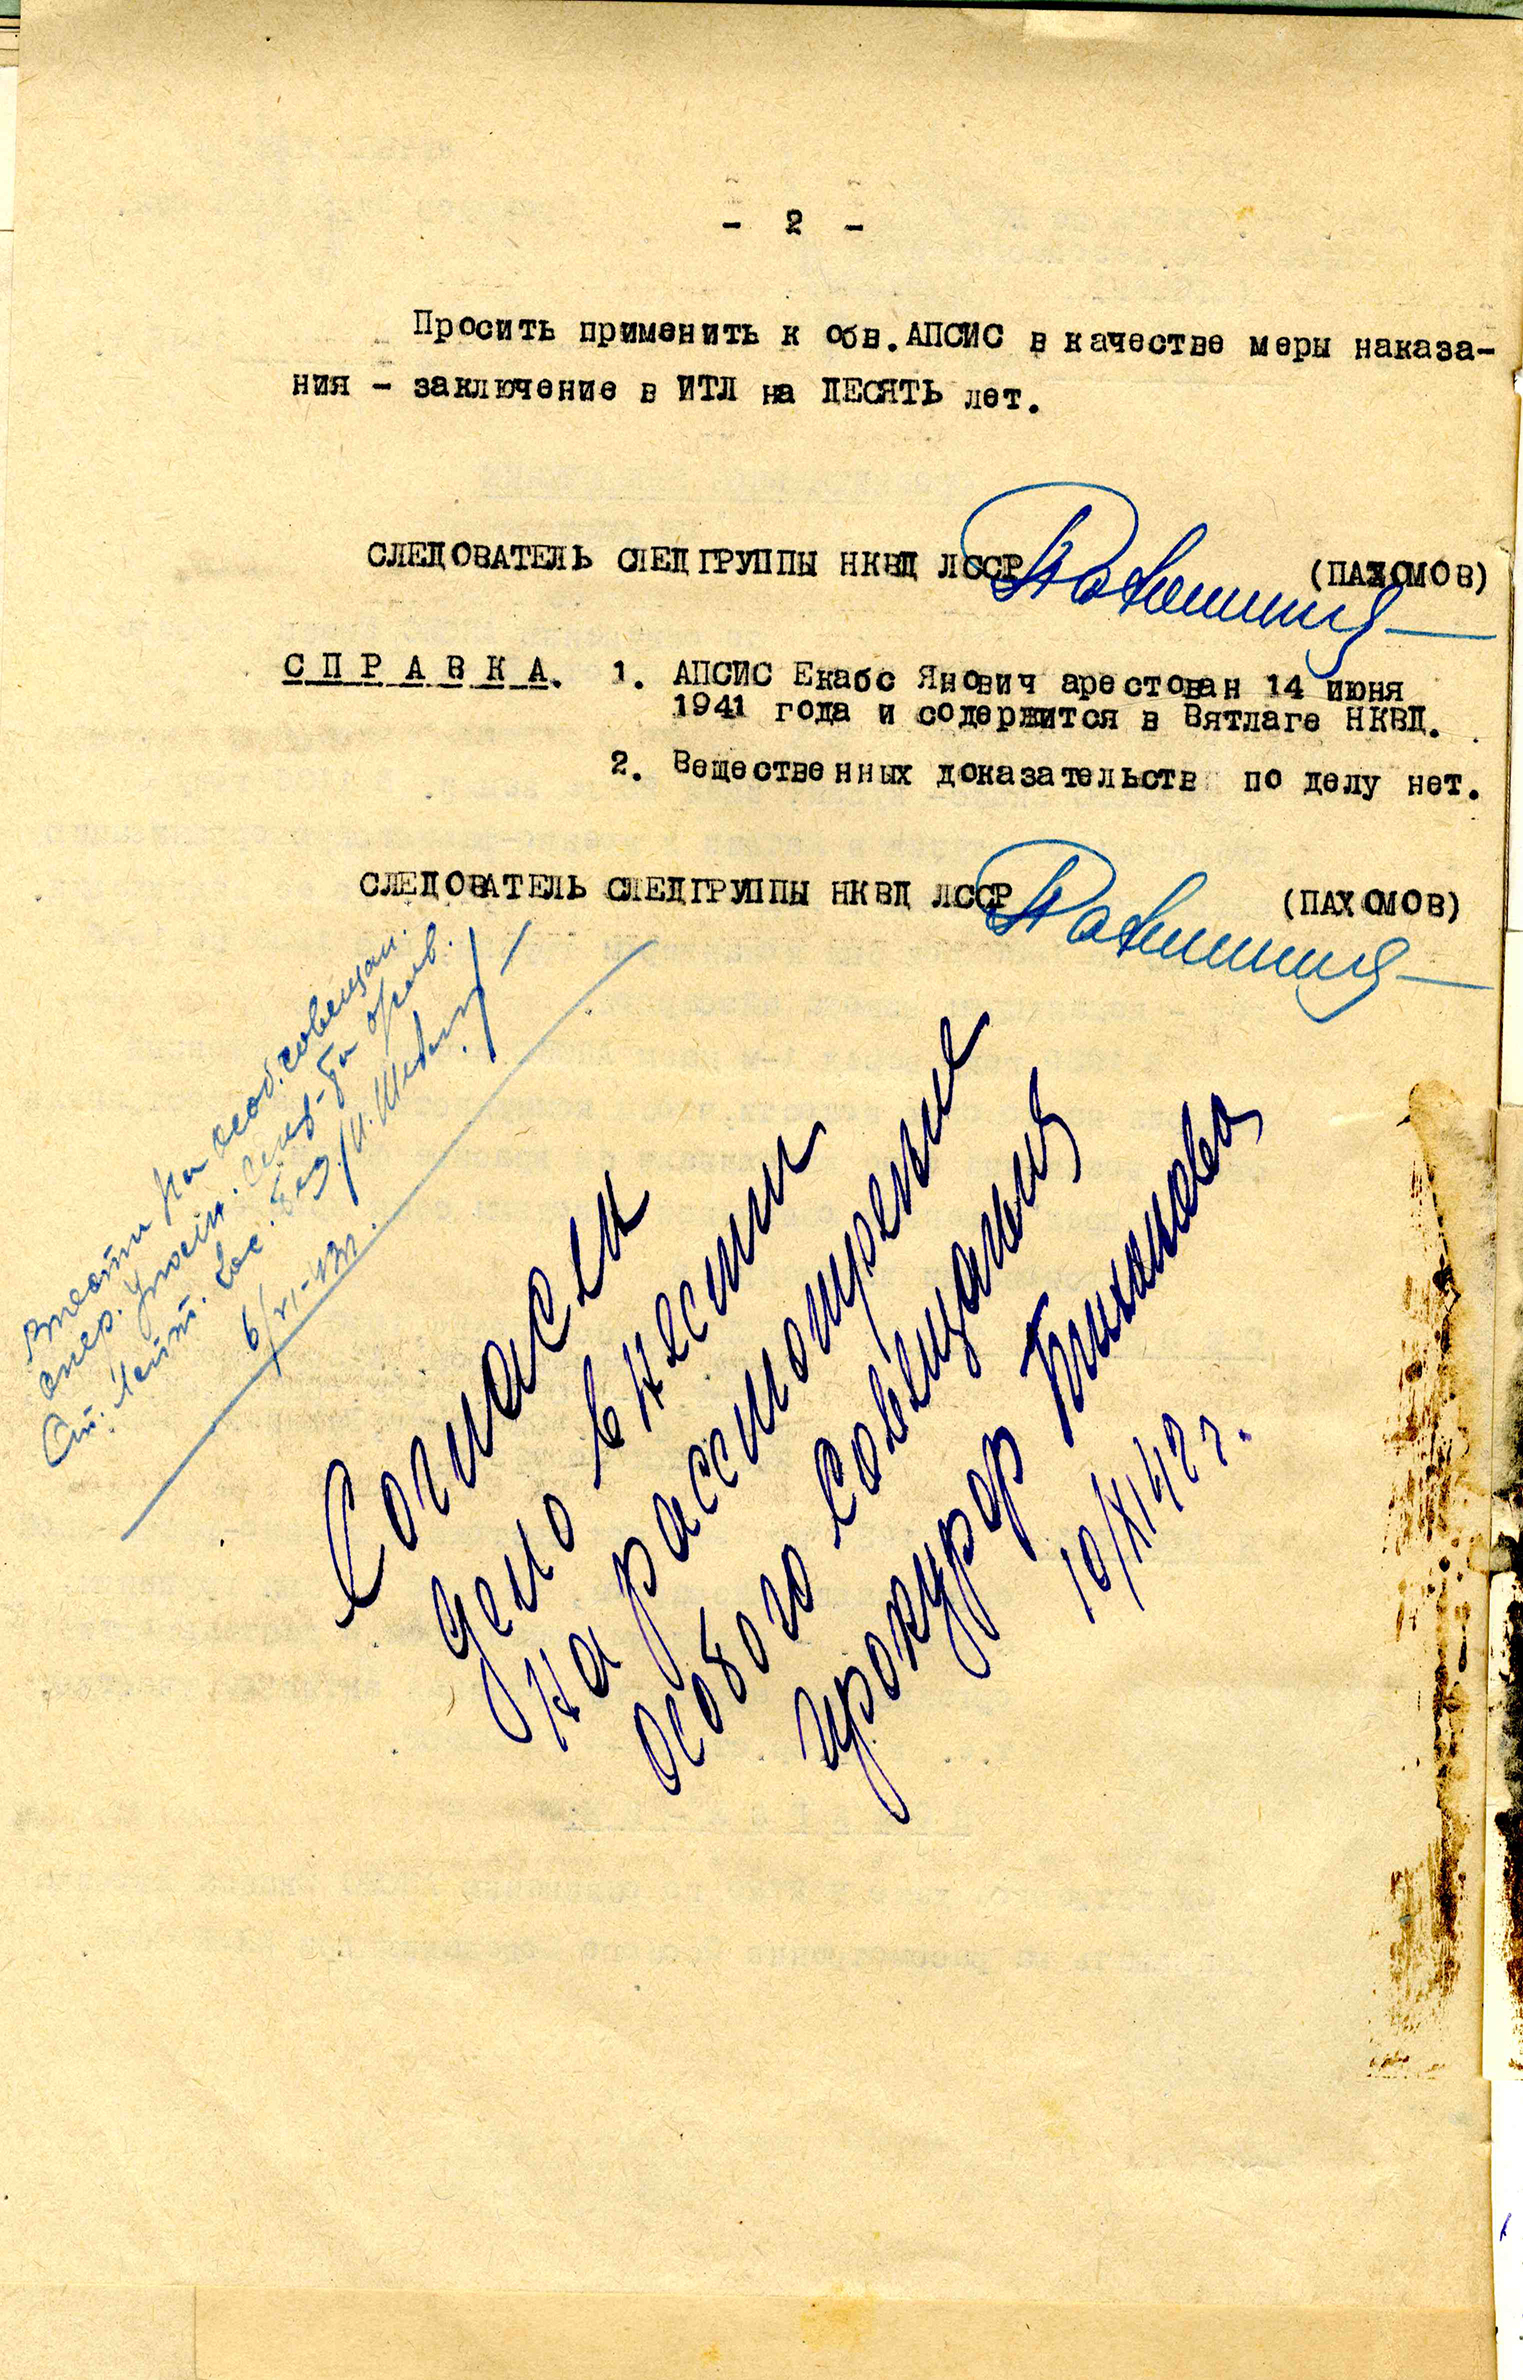 - 2 -
Просить применить к обв.АПСИС в качестве меры наказа-
ния - заключение в ИТЛ на ДЕСЯТЬ лет.
СЛЕДОВАТЕЛЬ СЛЕДГРУППЫ НКВД ЛССР (ПАХОМОВ)
СПРАВКА. 1. АПСИС Екабс Янович арестован 14 июня
1941 года и содержится в Вятлаге НКВД.
2. Вещественных доказательств по делу нет.
СЛЕДОВАТЕЛЬ СЛЕДГРУППЫ НКВД ЛССР (ПАХОМОВ)
на особ. совещан.
опер.
Ст. Лейт. Гос. Без.
Согласен
дело внести
на рассмотрение
особого совещания
прокурор
10/XI 42 г.